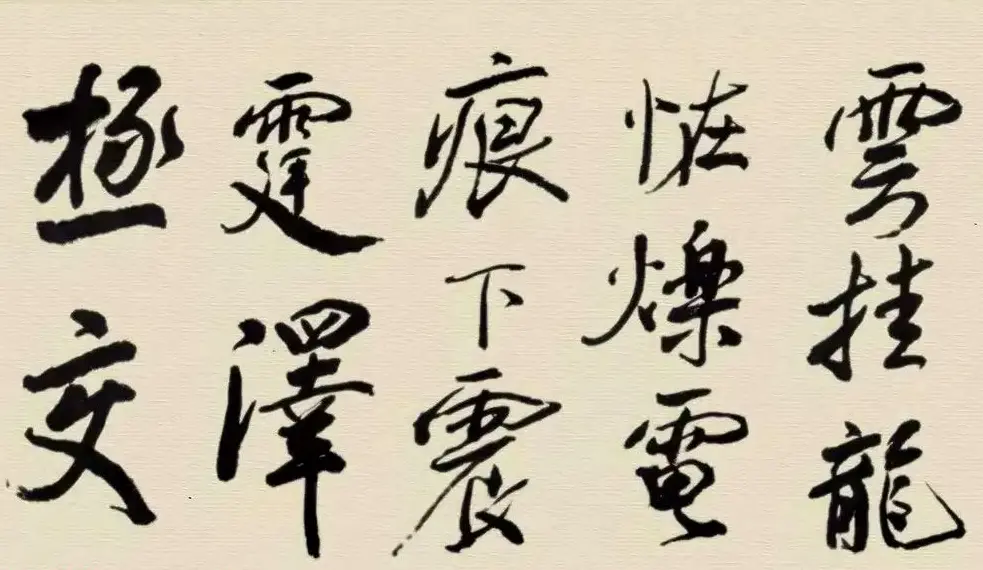 雲挂龍
恠爍電
痕下震
霆澤
極变